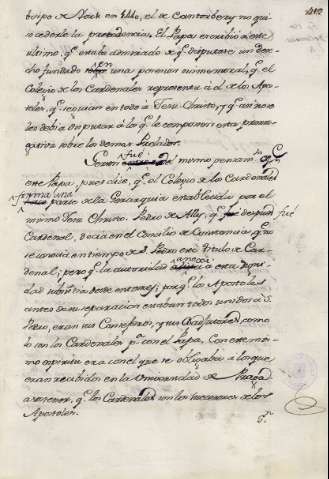 bispo de York en 1440, el de Cantorbery no qui
so cederle la precedencia. El Papa escribió á este
ultimo, qe estaba admirado de qe disputase un dere
cho fundado en una posesion inmemorial, qe el
Colegio de los Cardenales representa á el de los Apos
toles, qe seguian en todo á Jesu Christo, y qe asi no se
les debia disputar á los qe le componen esta prerro
gativa sobre los demas Prelados.
Gerson fué del mismo pensamto qe
este Papa; pues dice, qe el Colegio de los Cardenales
forma una parte de la Gerarquia establecida por el
mismo Jesu Christo. Pedro de Ailly, qe despues fué
Cardenal, decia en el Concilio de Constancia qe no
se conocia en tiempo de S. Pedro este titulo de Car
denal; pero qe la autoridad anexa á esta Digni
dad subsistia desde entonces; porqe los Apostoles
antes de su separacion estaban todos unidos á S.
Pedro, eran sus Consejeros, y sus Coadjutores, como
lo son los Cardenales pa con el Papa. Con este mis
mo espiritu era con el que se obligaba á los que
eran recibidos en la Universidad de Praga
á sostener, qe los Cardenales son los sucesores de los
Apostoles.